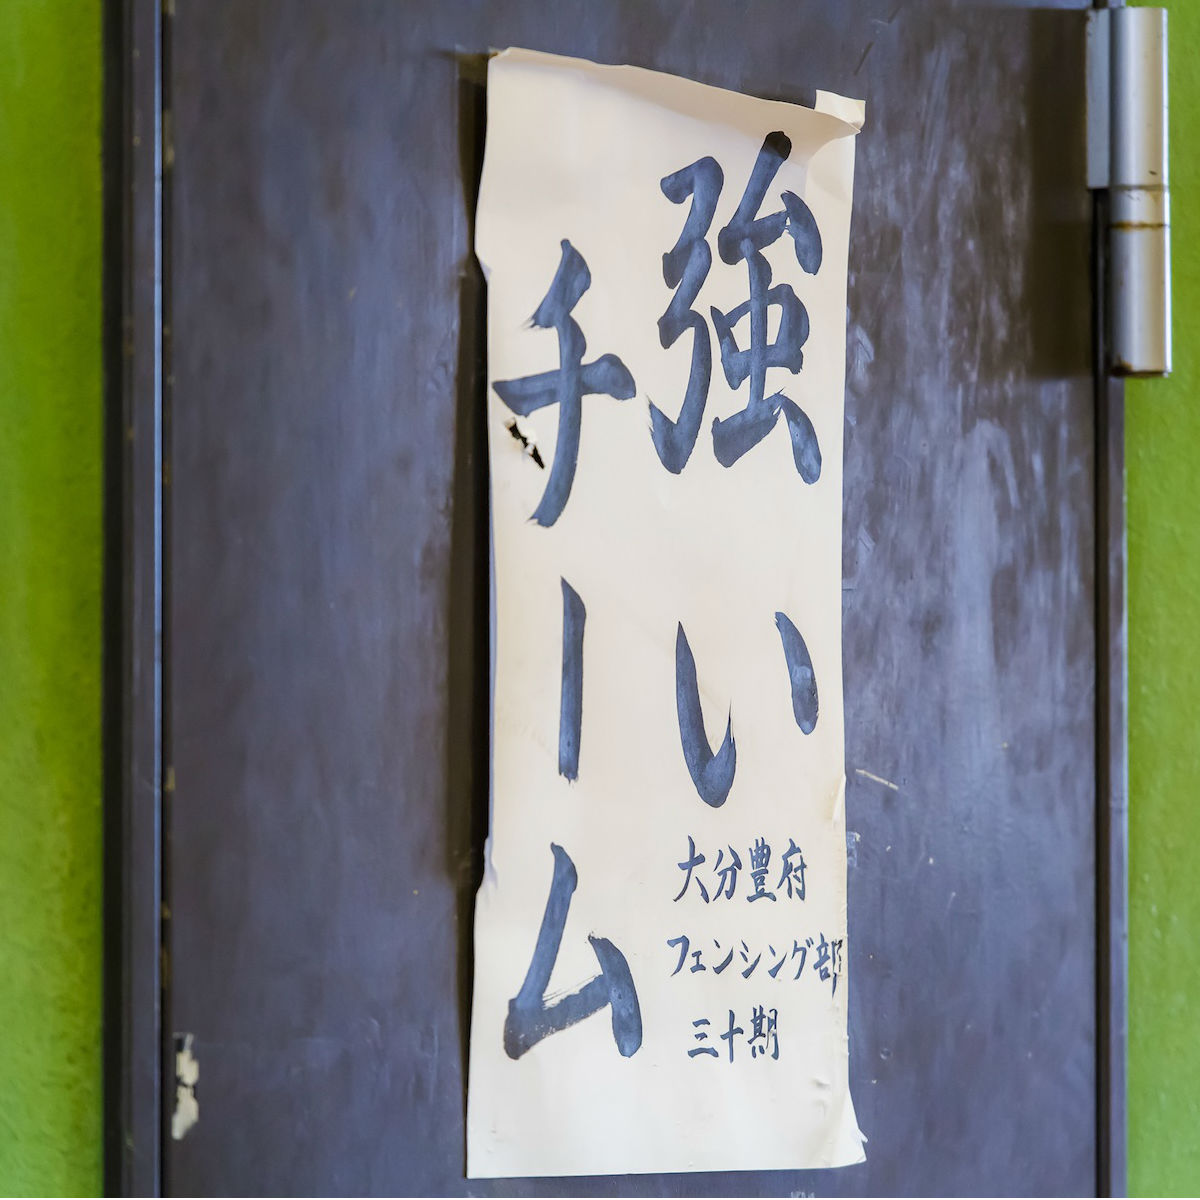 強い
チーム
大分豊府
フェンシング部
三十期